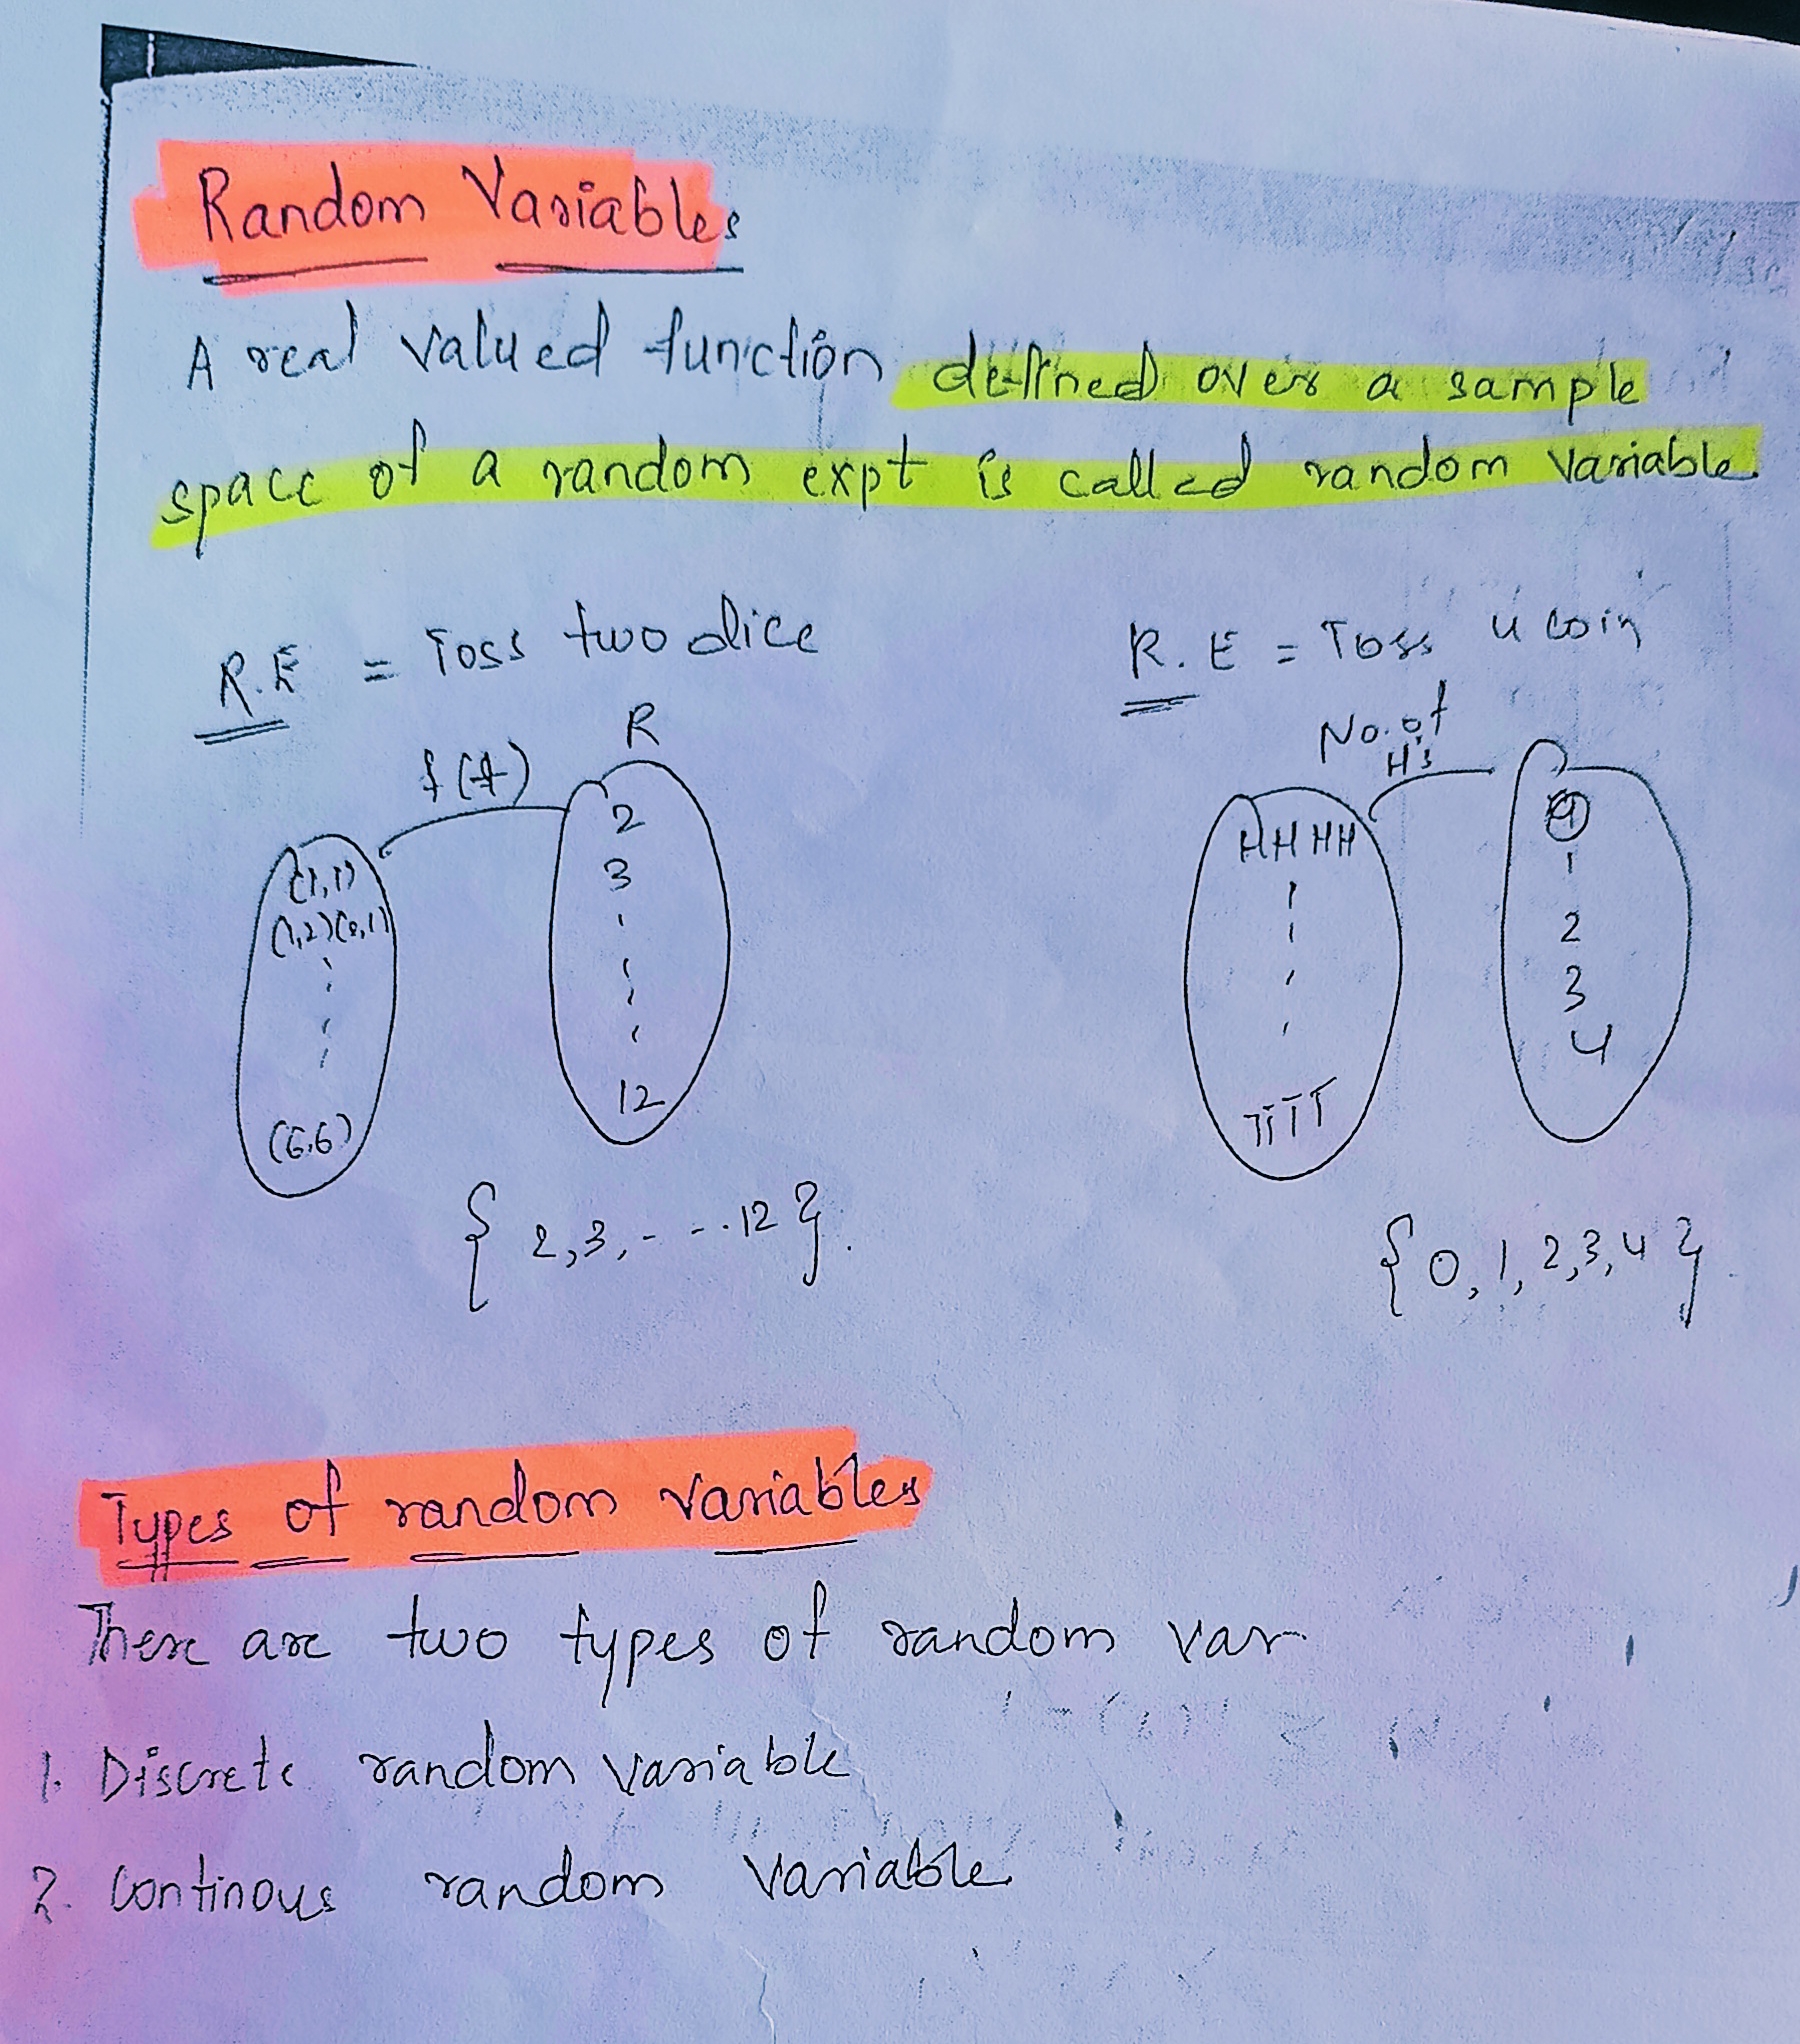 Random Variables
A real valued function defined over a sample
space of a random expt is called random variable.
R.E = Toss two dice
f(t)
R
(1,1)
(1,2)(2,1)
(6,6)
2
3
12
{2,3,---12}.
R.E = Toss 4 coin
No. of
H's
HHHH
TTTT
0
1
2
3
4
{0,1,2,3,4}
Types of random variables
There are two types of random var
1. Discrete random variable
2. Continous random variable